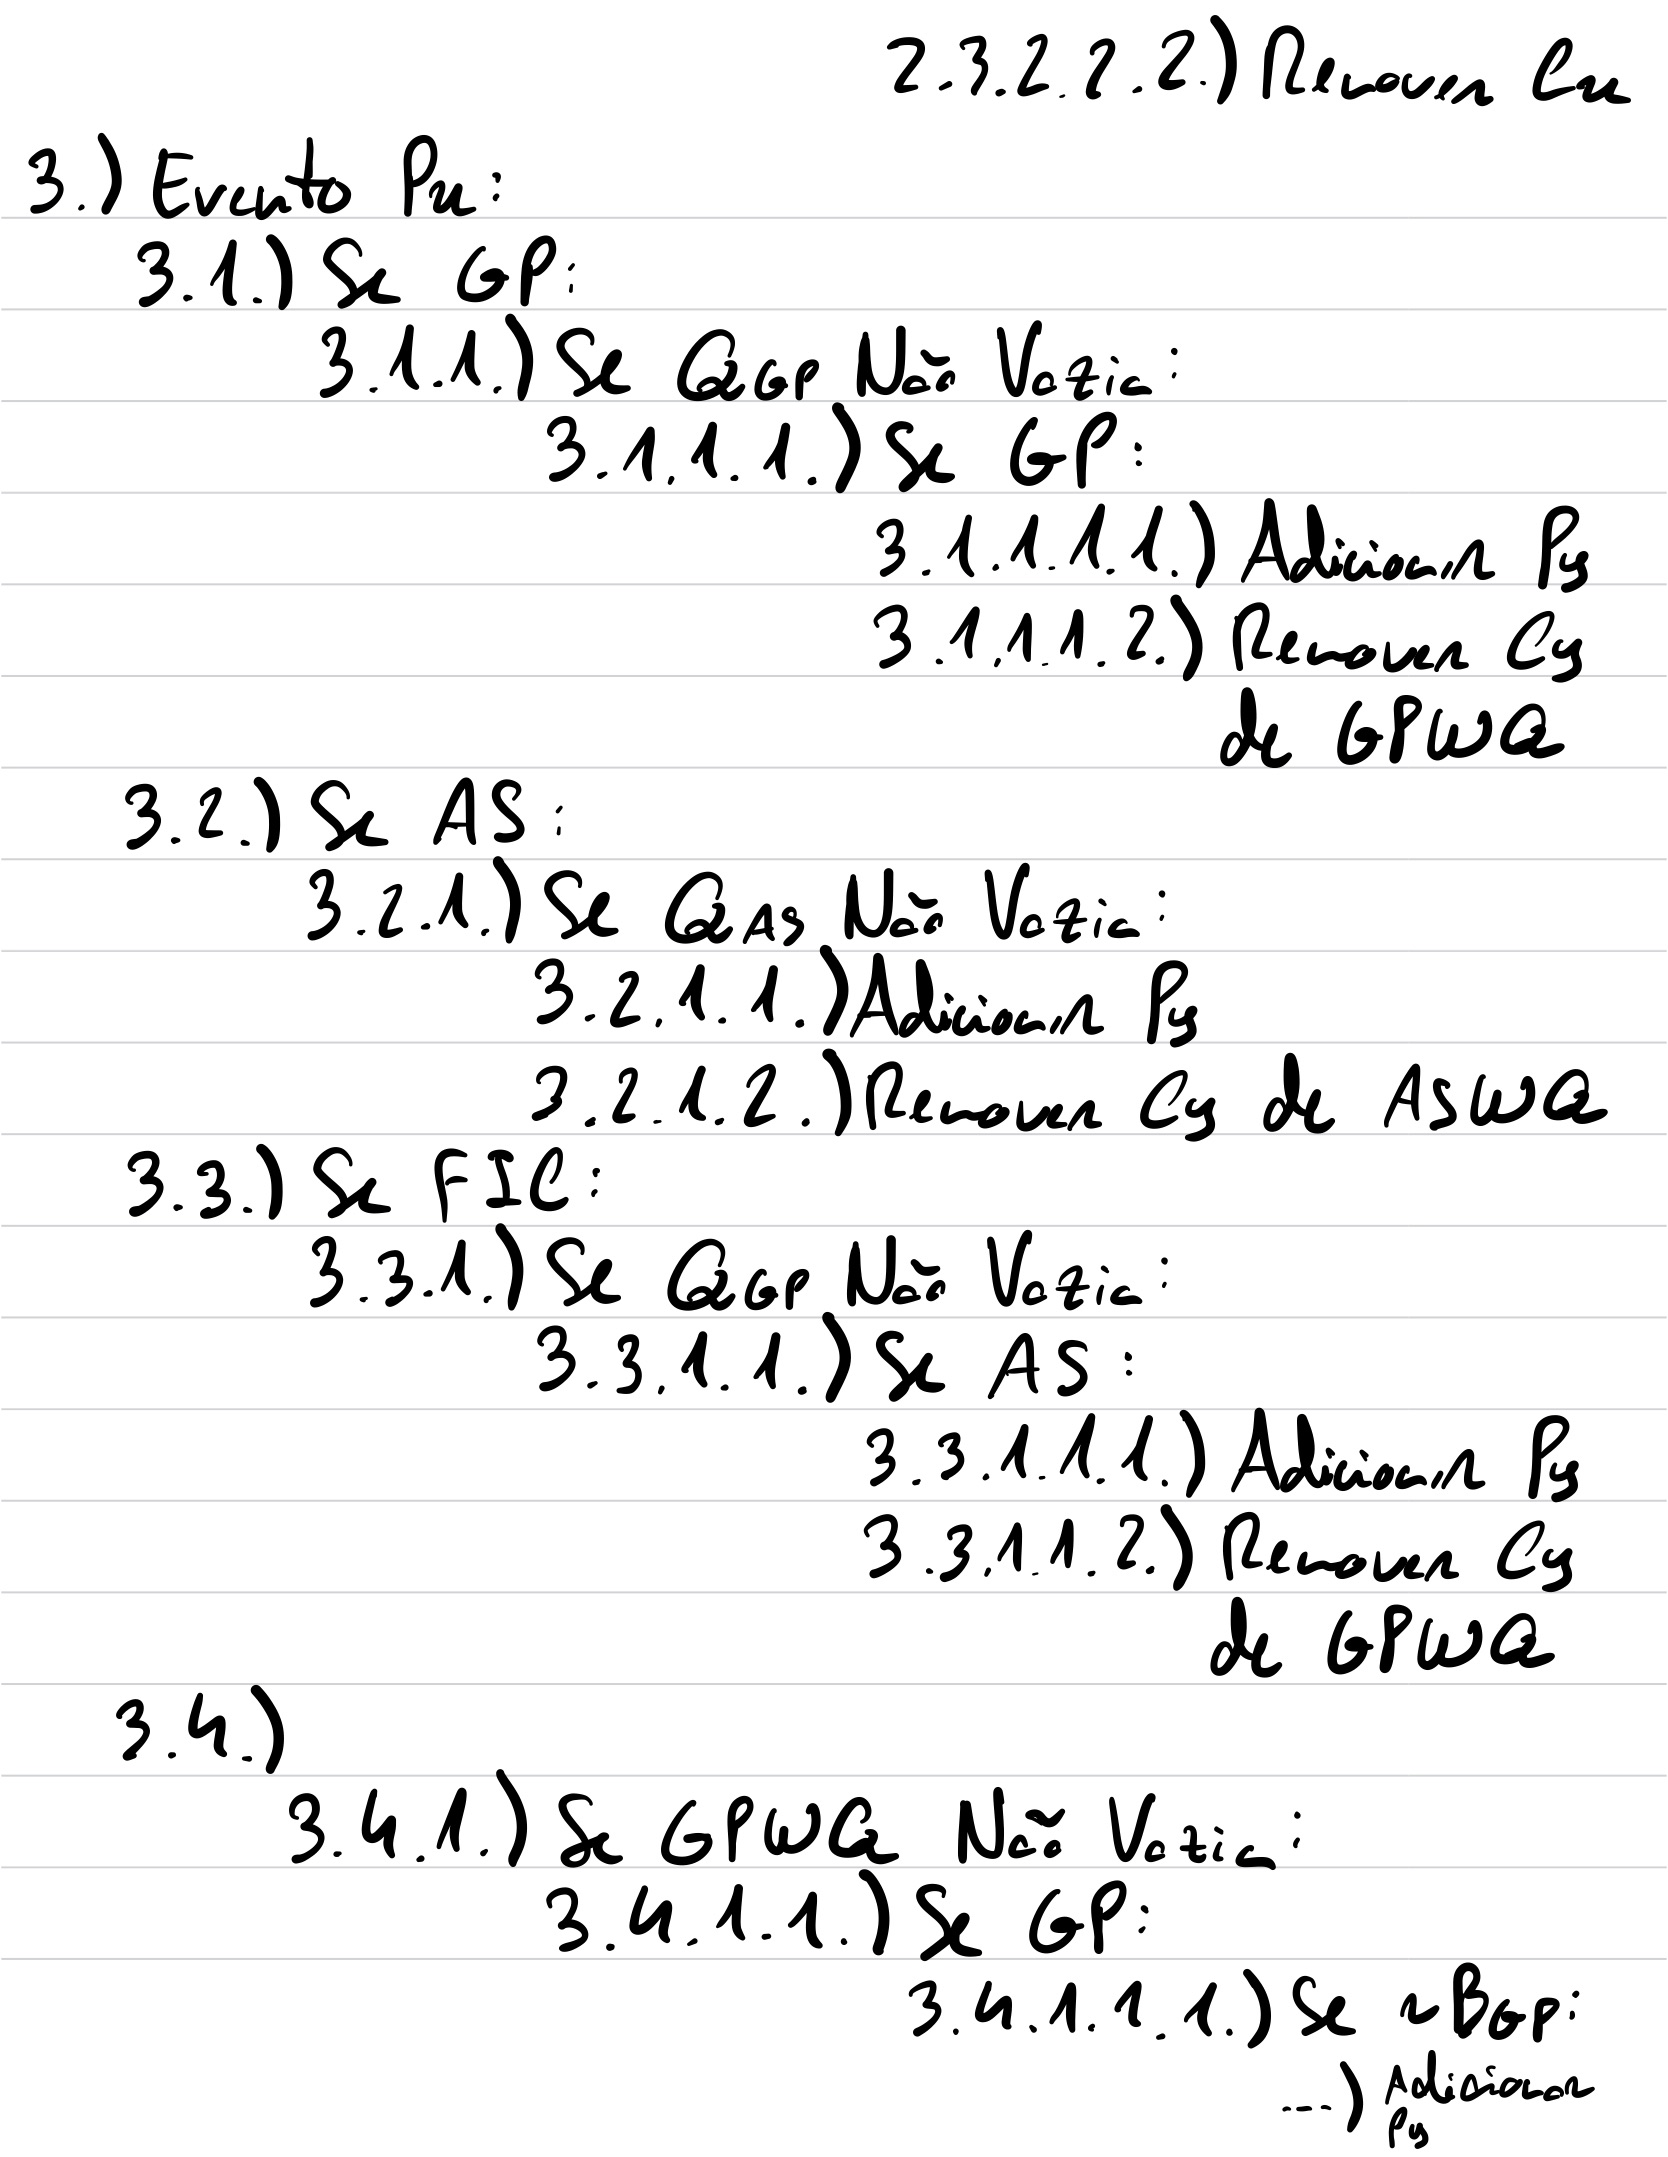 2.3.2.2.2.) Remover Cx
3.) Evento Px:
3.1.) Se GP:
3.1.1.) Se QGP Não Vazia:
3.1.1.1.) Se GP:
3.1.1.1.1.) Adicionar Py
3.1.1.1.2.) Remover Cy
de GPWQ
3.2.) Se AS:
3.2.1.) Se QAS Não Vazia:
3.2.1.1.) Adicionar Py
3.2.1.2.) Remover Cy de ASWQ
3.3.) Se FIC:
3.3.1.) Se QGP Não Vazia:
3.3.1.1.) Se AS:
3.3.1.1.1.) Adicionar Py
3.3.1.1.2.) Remover Cy
de GPWQ
3.4.)
3.4.1.) Se GPWQ Não Vazia:
3.4.1.1.) Se GP:
3.4.1.1.1.) Se ~BGP:
---) Adicionar
Py